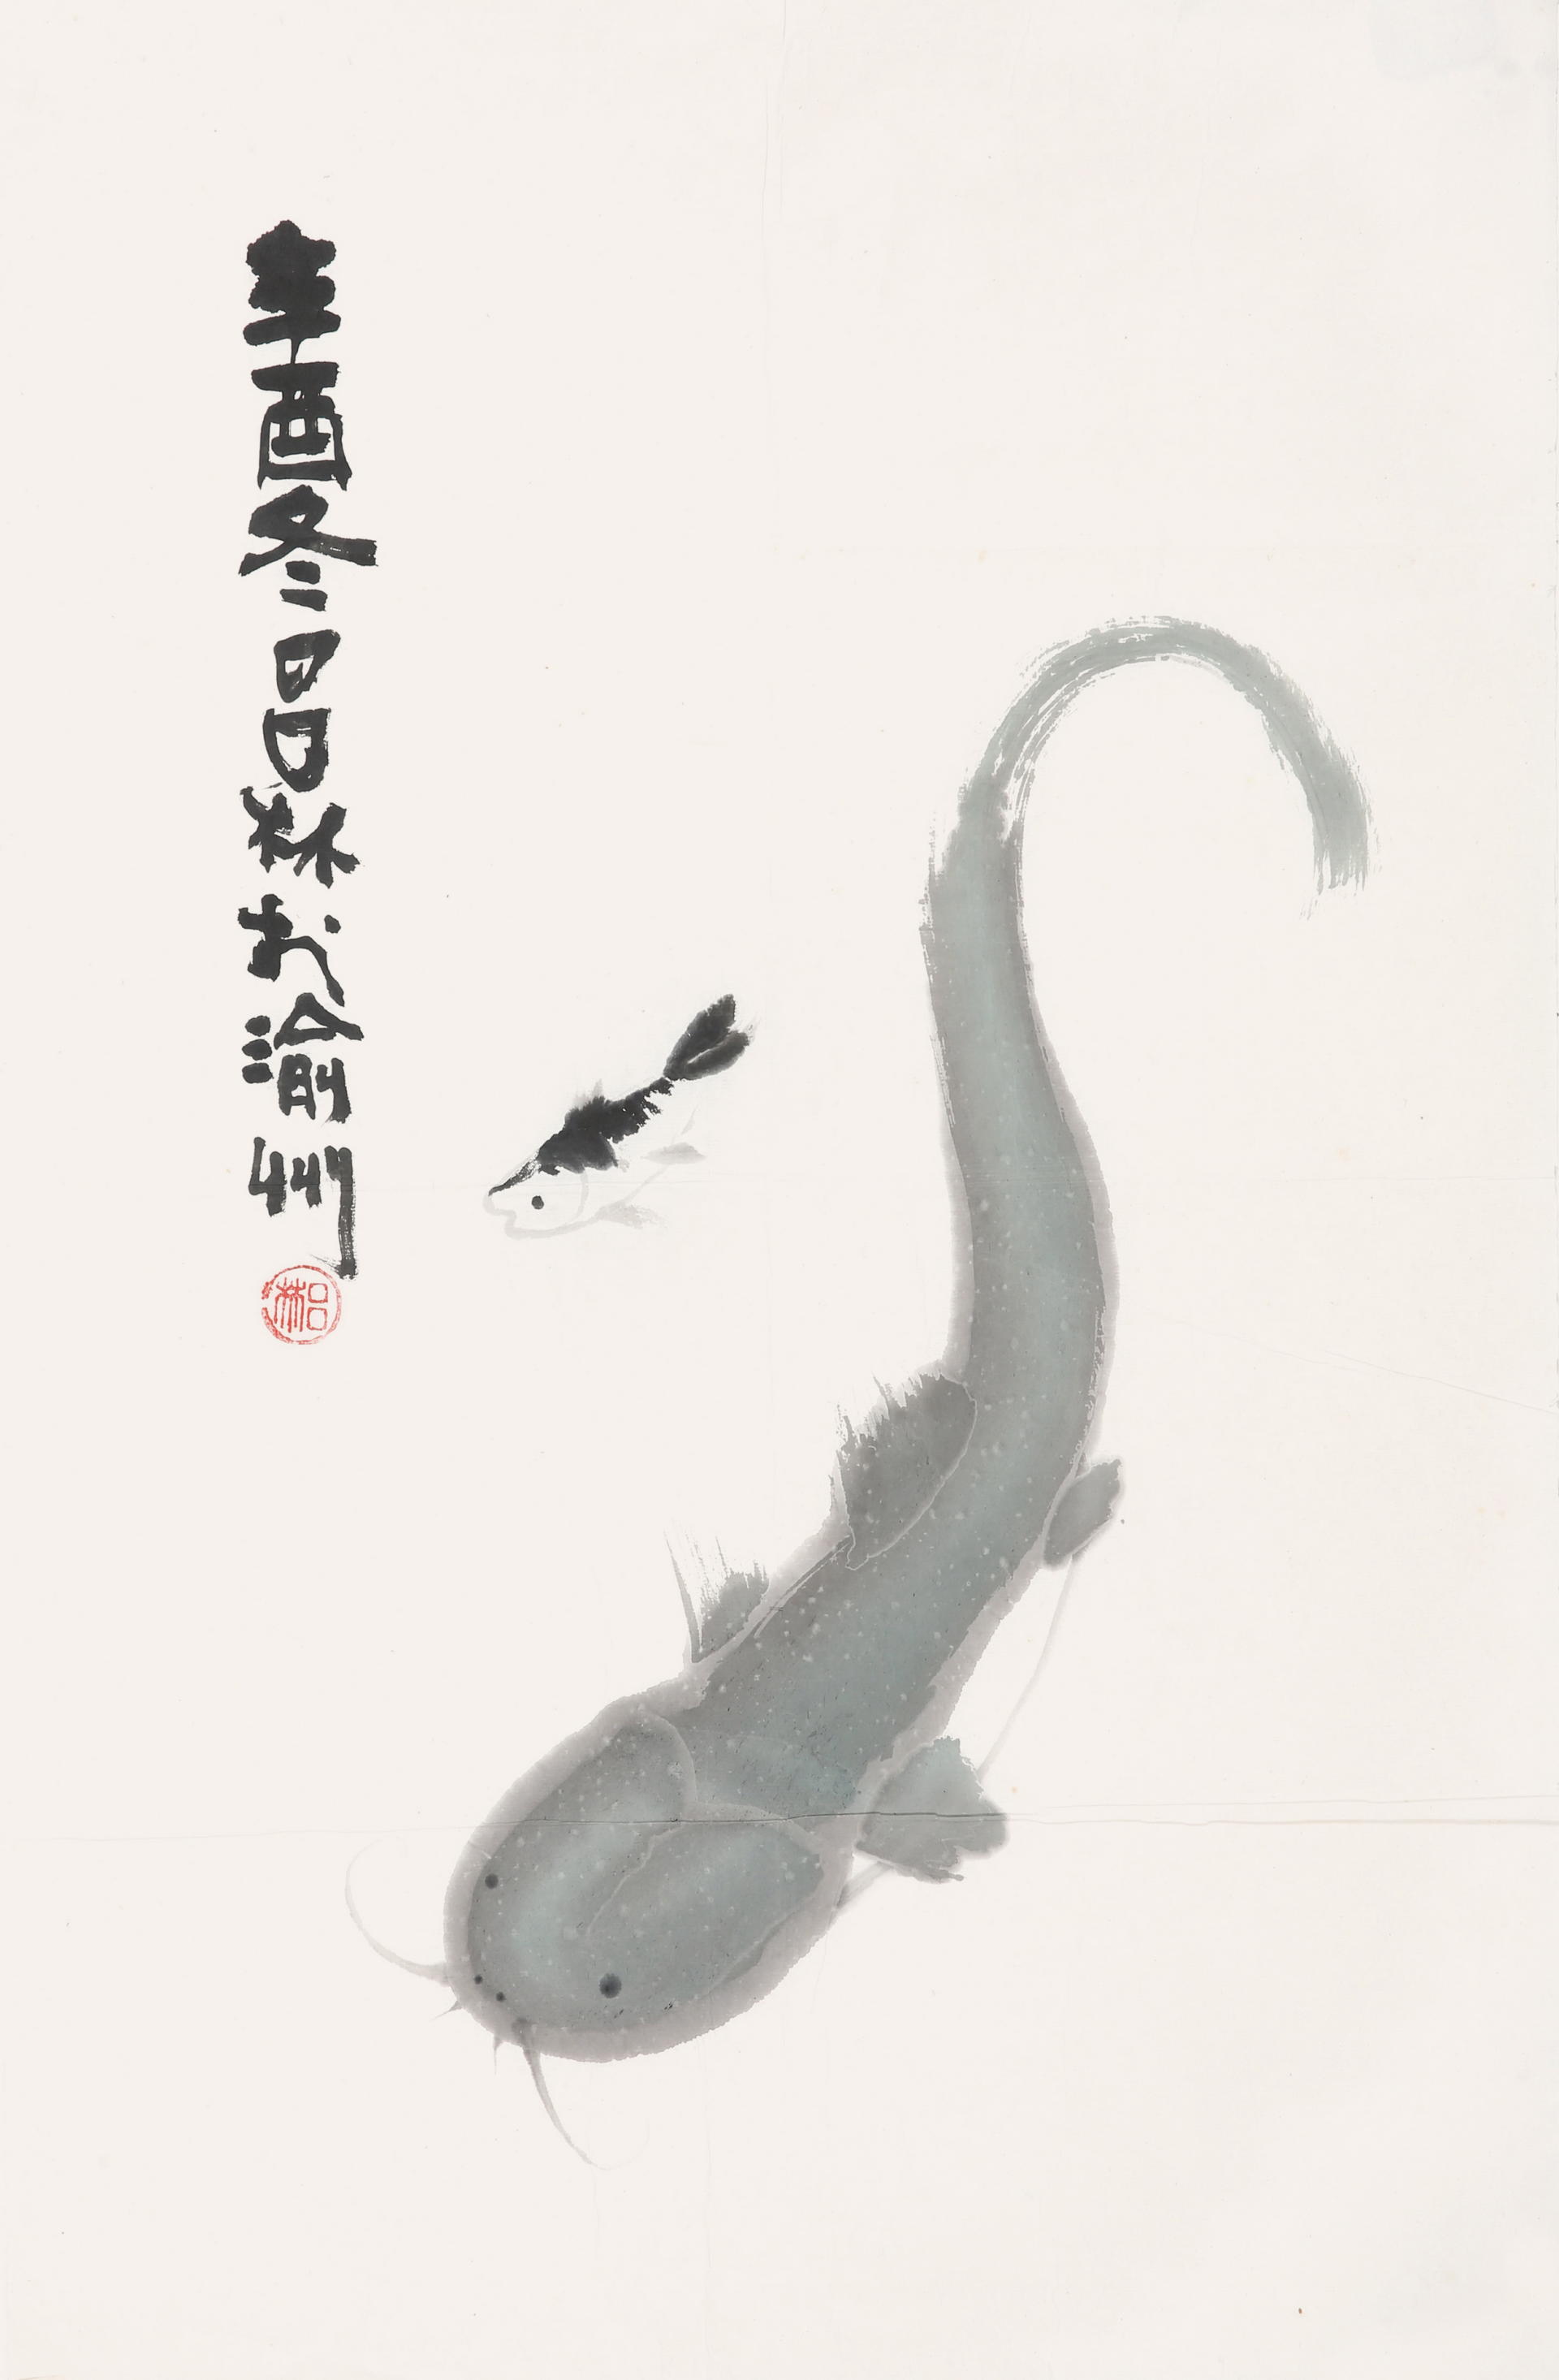 辛酉冬吕林於渝州
吕林